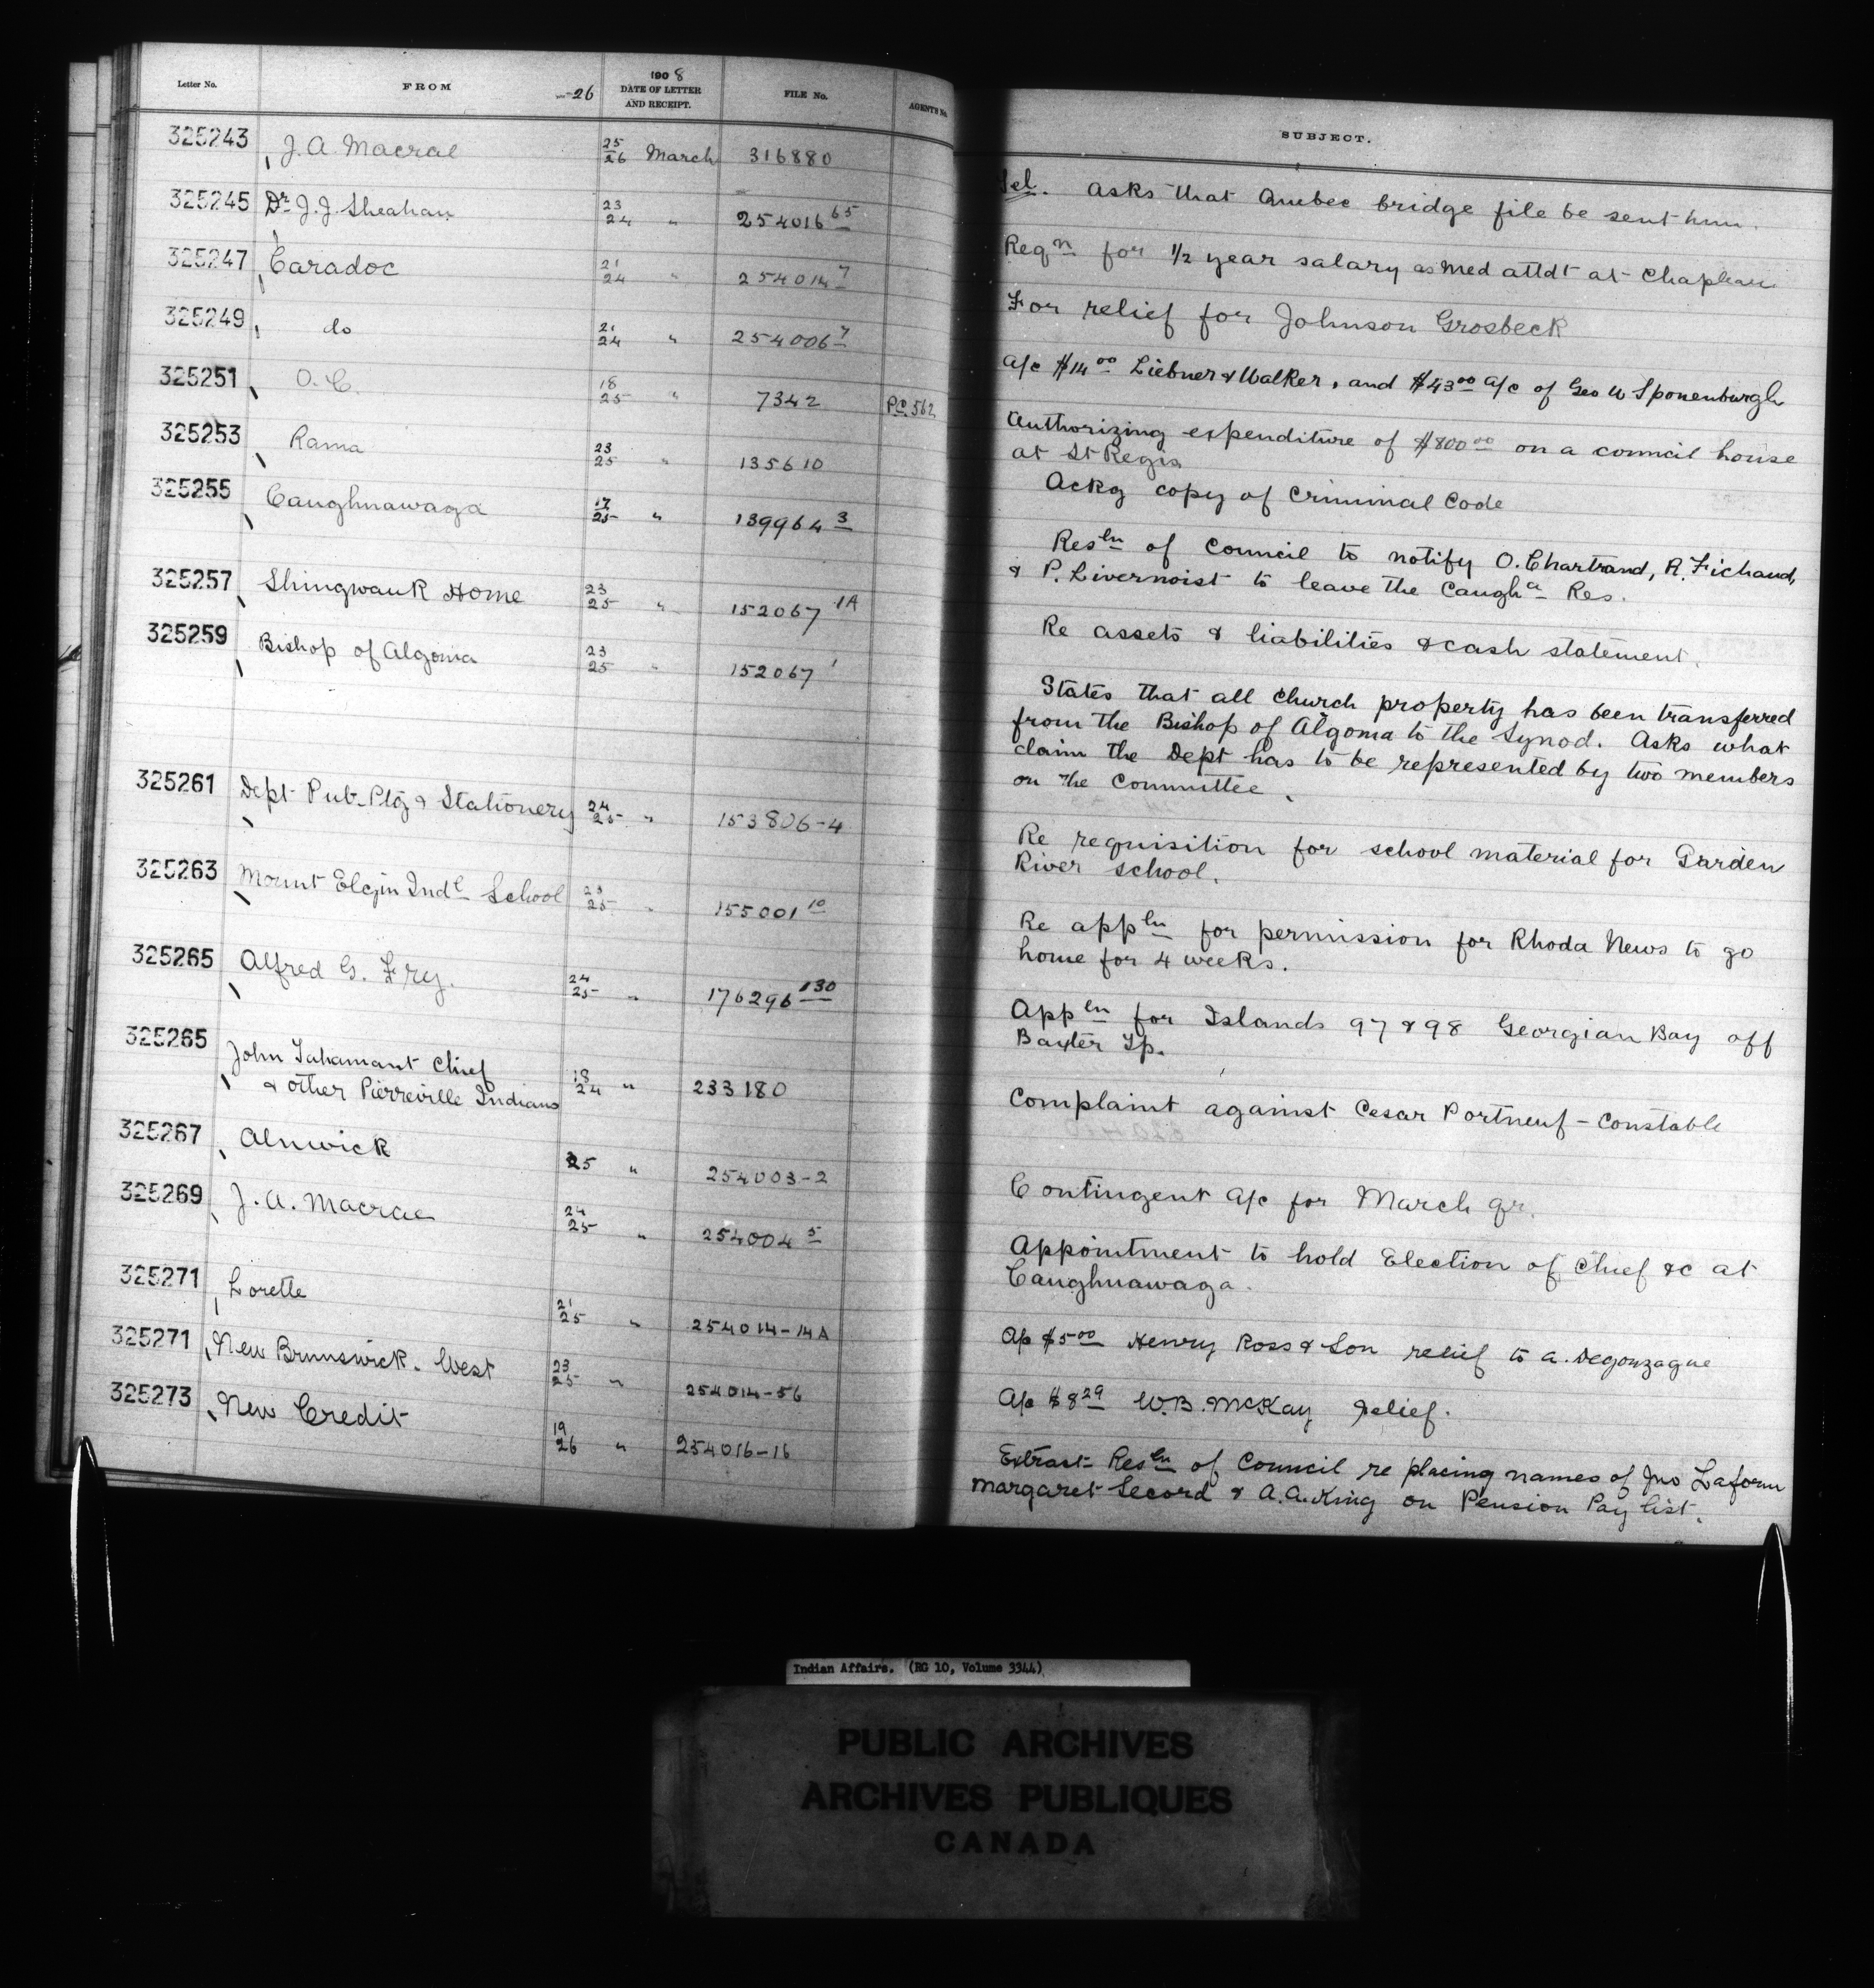 Letter No. FROM -26 1908 DATE OF LETTER AND RECEIPT. FILE No. AGENTS No. SUBJECT.
325243 J. A. Macrae 25/26 March 316880 Tel. Asks that Quebec bridge file be sent him.
325245 Dr J. J. Sheahan 23/24 " 254016 65 Reqn for 1/2 year salary as Med attdt at Chapleau
325247 Caradoc 21/24 " 254014 7 For relief for Johnson Grosbeck
325249 do 21/24 " 254006 7 a/c $14 00 Liebner & Walker, and $43 00 a/c of Geo W Sponenburgh
325251 O. C. 18/25 " 7342 P.C. 562 Authorizing expenditure of $800 00 on a council house
at St Regis
325253 Rama 23/25 " 135610 Ackg copy of Criminal Code
325255 Caughnawaga 17/25 " 139964 3 Resln of Council to notify O. Chartrand, R. Fichaud,
& P. Livernoist to leave the Caugha Res.
325257 Shingwauk Home 23/25 " 152067 1A Re assets & liabilities & cash statement.
325259 Bishop of Algoma 23/25 " 152067 1 States that all church property has been transferred
from the Bishop of Algoma to the Synod. Asks what
claim the Dept has to be represented by two members
on the Committee.
325261 Dept Pub. Ptg & Stationery 24/25 " 153806-4 Re requisition for school material for Garden
River school.
325263 Mount Elgin Indl School 23/25 " 155001 10 Re appln for permission for Rhoda News to go
home for 4 weeks.
325265 Alfred G. Fry. 24/25 " 176296 130 Appln for Islands 97 & 98 Georgian Bay off
Baxter Tp.
325265 John Tahamant Chief
& other Pierreville Indians 18/24 " 233180 Complaint against Cesar Portneuf - Constable
325267 Alnwick 25 " 254003-2 Contingent a/c for March qr.
325269 J. A. Macrae 24/25 " 254004 5 Appointment to hold Election of Chief &c at
Caughnawaga.
325271 Lorette 21/25 " 254014-14A A/c $5 00 Henry Ross & Son relief to A. Degonzague
325271 New Brunswick. West 23/25 " 254014-56 A/c $8 29 W. B. McKay relief.
325273 New Credit 19/26 " 254016-16 Extract Resln of Council re placing names of Jno Laform
Margaret Secord & A. A. King on Pension Pay list.
Indian Affairs. (RG 10, Volume 3344)
PUBLIC ARCHIVES
ARCHIVES PUBLIQUES
CANADA